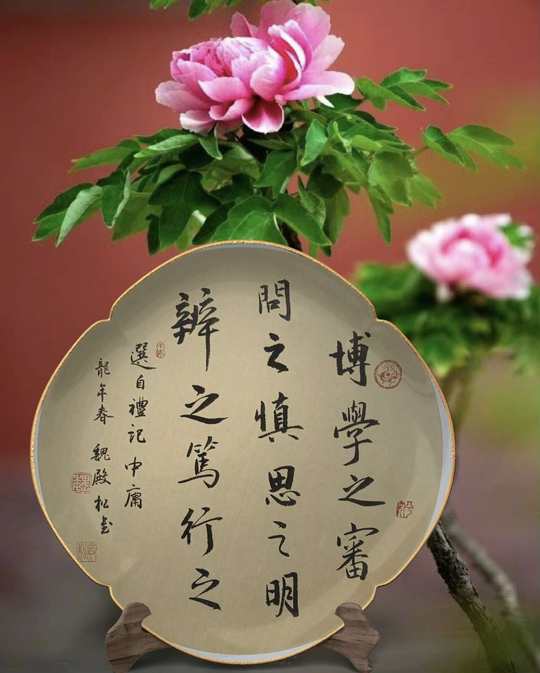 博學之審
問之慎思之明
辨之篤行之
選自禮記中庸
龍年春魏殿松書